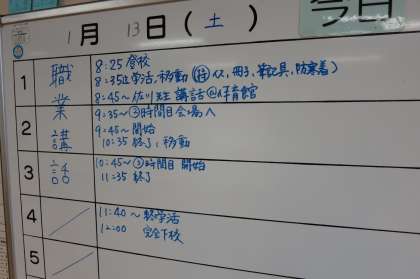 1月 13日(土)
今日
1
職
8:25 登校
8:35 学活、移動 (持)イス、冊子、筆記具、防寒着)
8:45~佐川 講話@体育館
業
2
9:35~②時間目会場へ
9:45~開始
講
10:35 終了、移動
3
話
10:45~③時間目 開始
11:35 終了
4
11:40~終学活
12:00 完全下校
5